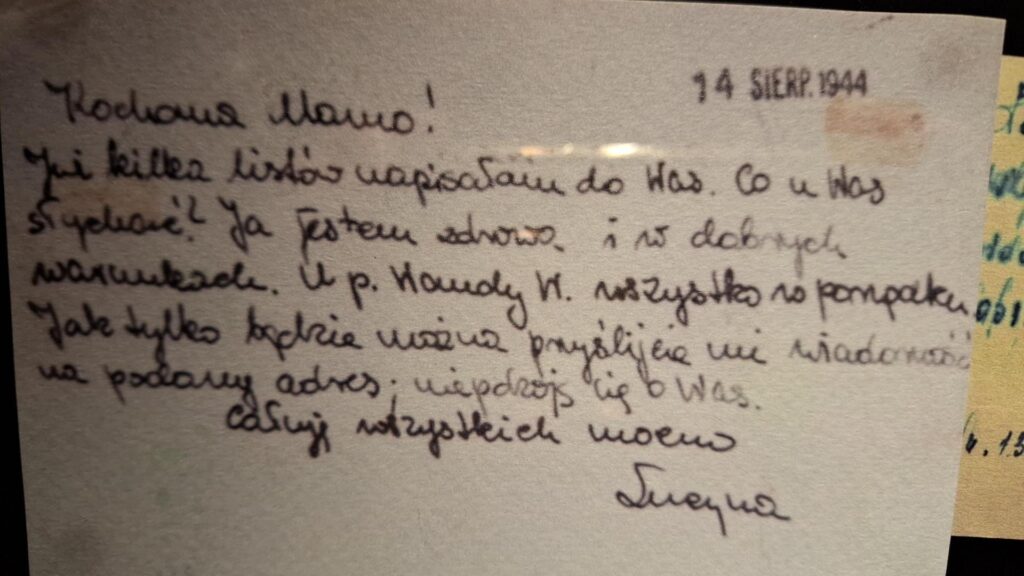 14 SIERP. 1944
Kochana Mamo!
Już kilka listów napisałam do Was. Co u Was
słychać? Ja jestem zdrowa i w dobrych
warunkach. U p. Wandy W. wszystko w porządku
Jak tylko będzie można przyślijcie mi wiadomość
na podany adres; niepokoję się o Was.
Całuję wszystkich mocno
Lucyna